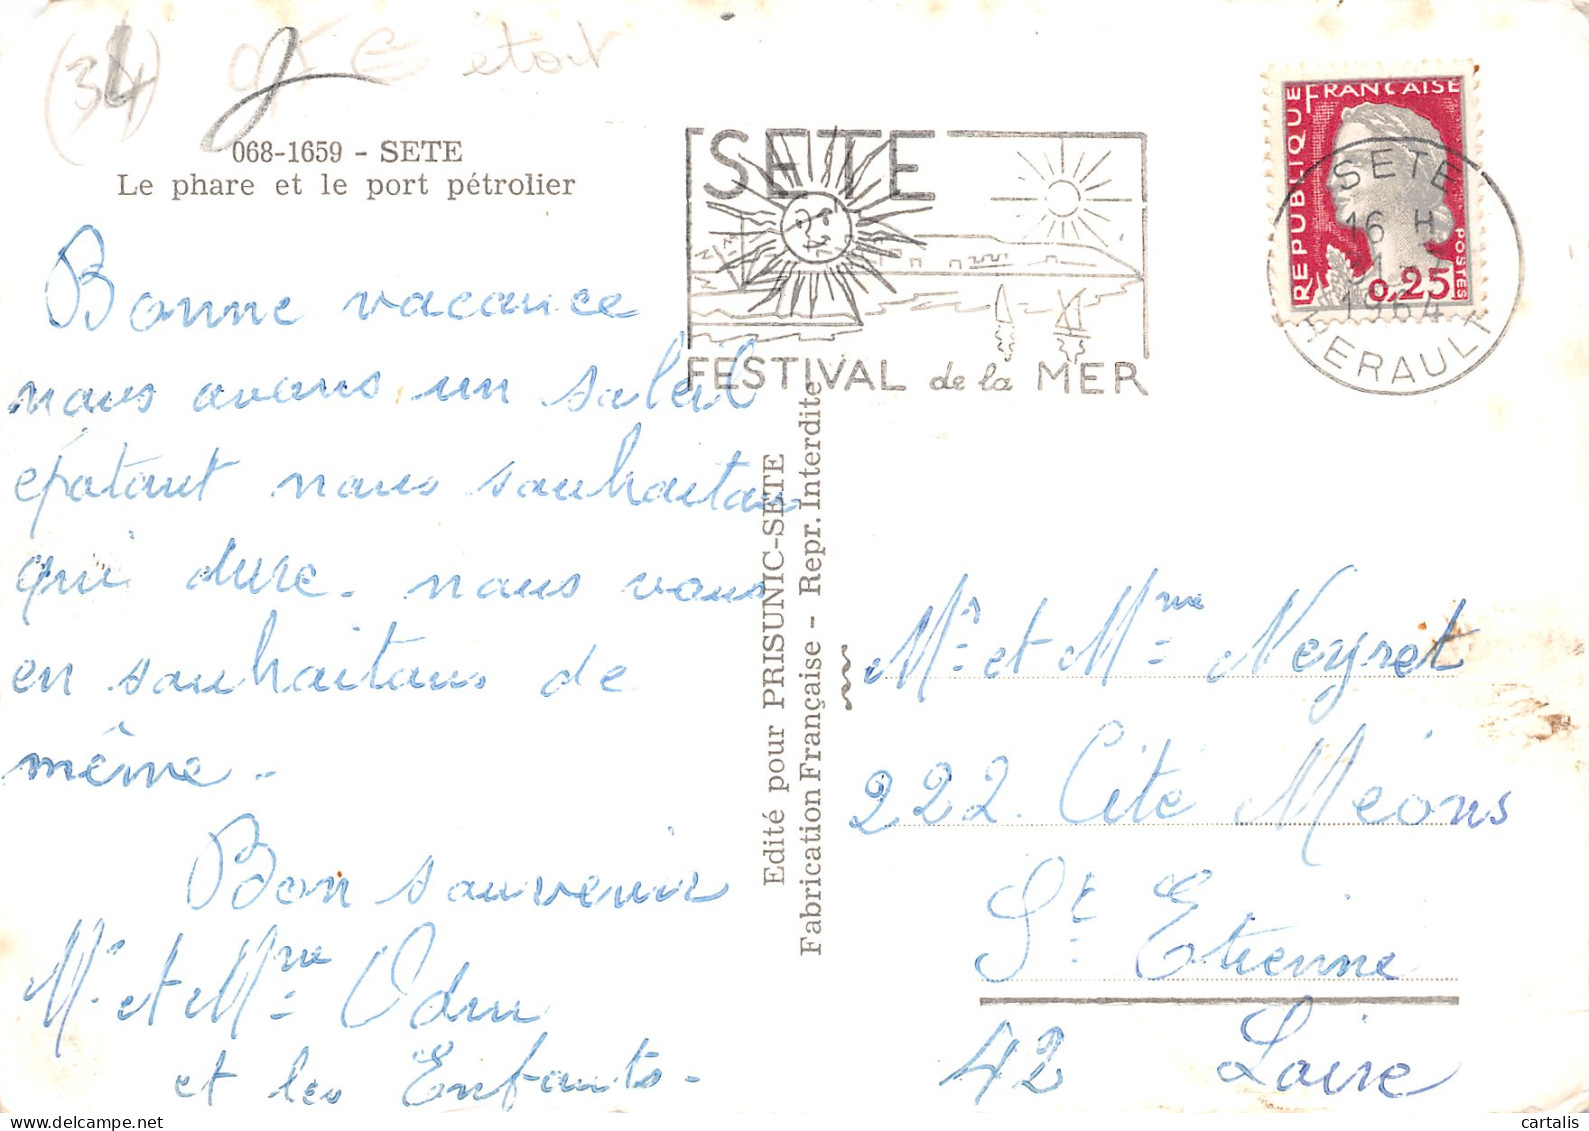 (34) étoit
068-1659 - SETE
Le phare et le port pétrolier
Bonne vacance
nous avons un soleil
épatant nous souhaitau
qui dure. nous vous
en souhaitons de
même.
Bon souvenir
Mr et Mme Odin
et les Enfants.
SETE
FESTIVAL de la MER
Edité pour PRISUNIC-SETE
Fabrication Française - Repr. Interdite
REPUBLIQUE FRANCAISE
POSTES
0,25
SETE
16 H
1964
HERAULT
Mr et Mme Neyret
222. Cité Méons
St Etienne
42 Loire
cartalis